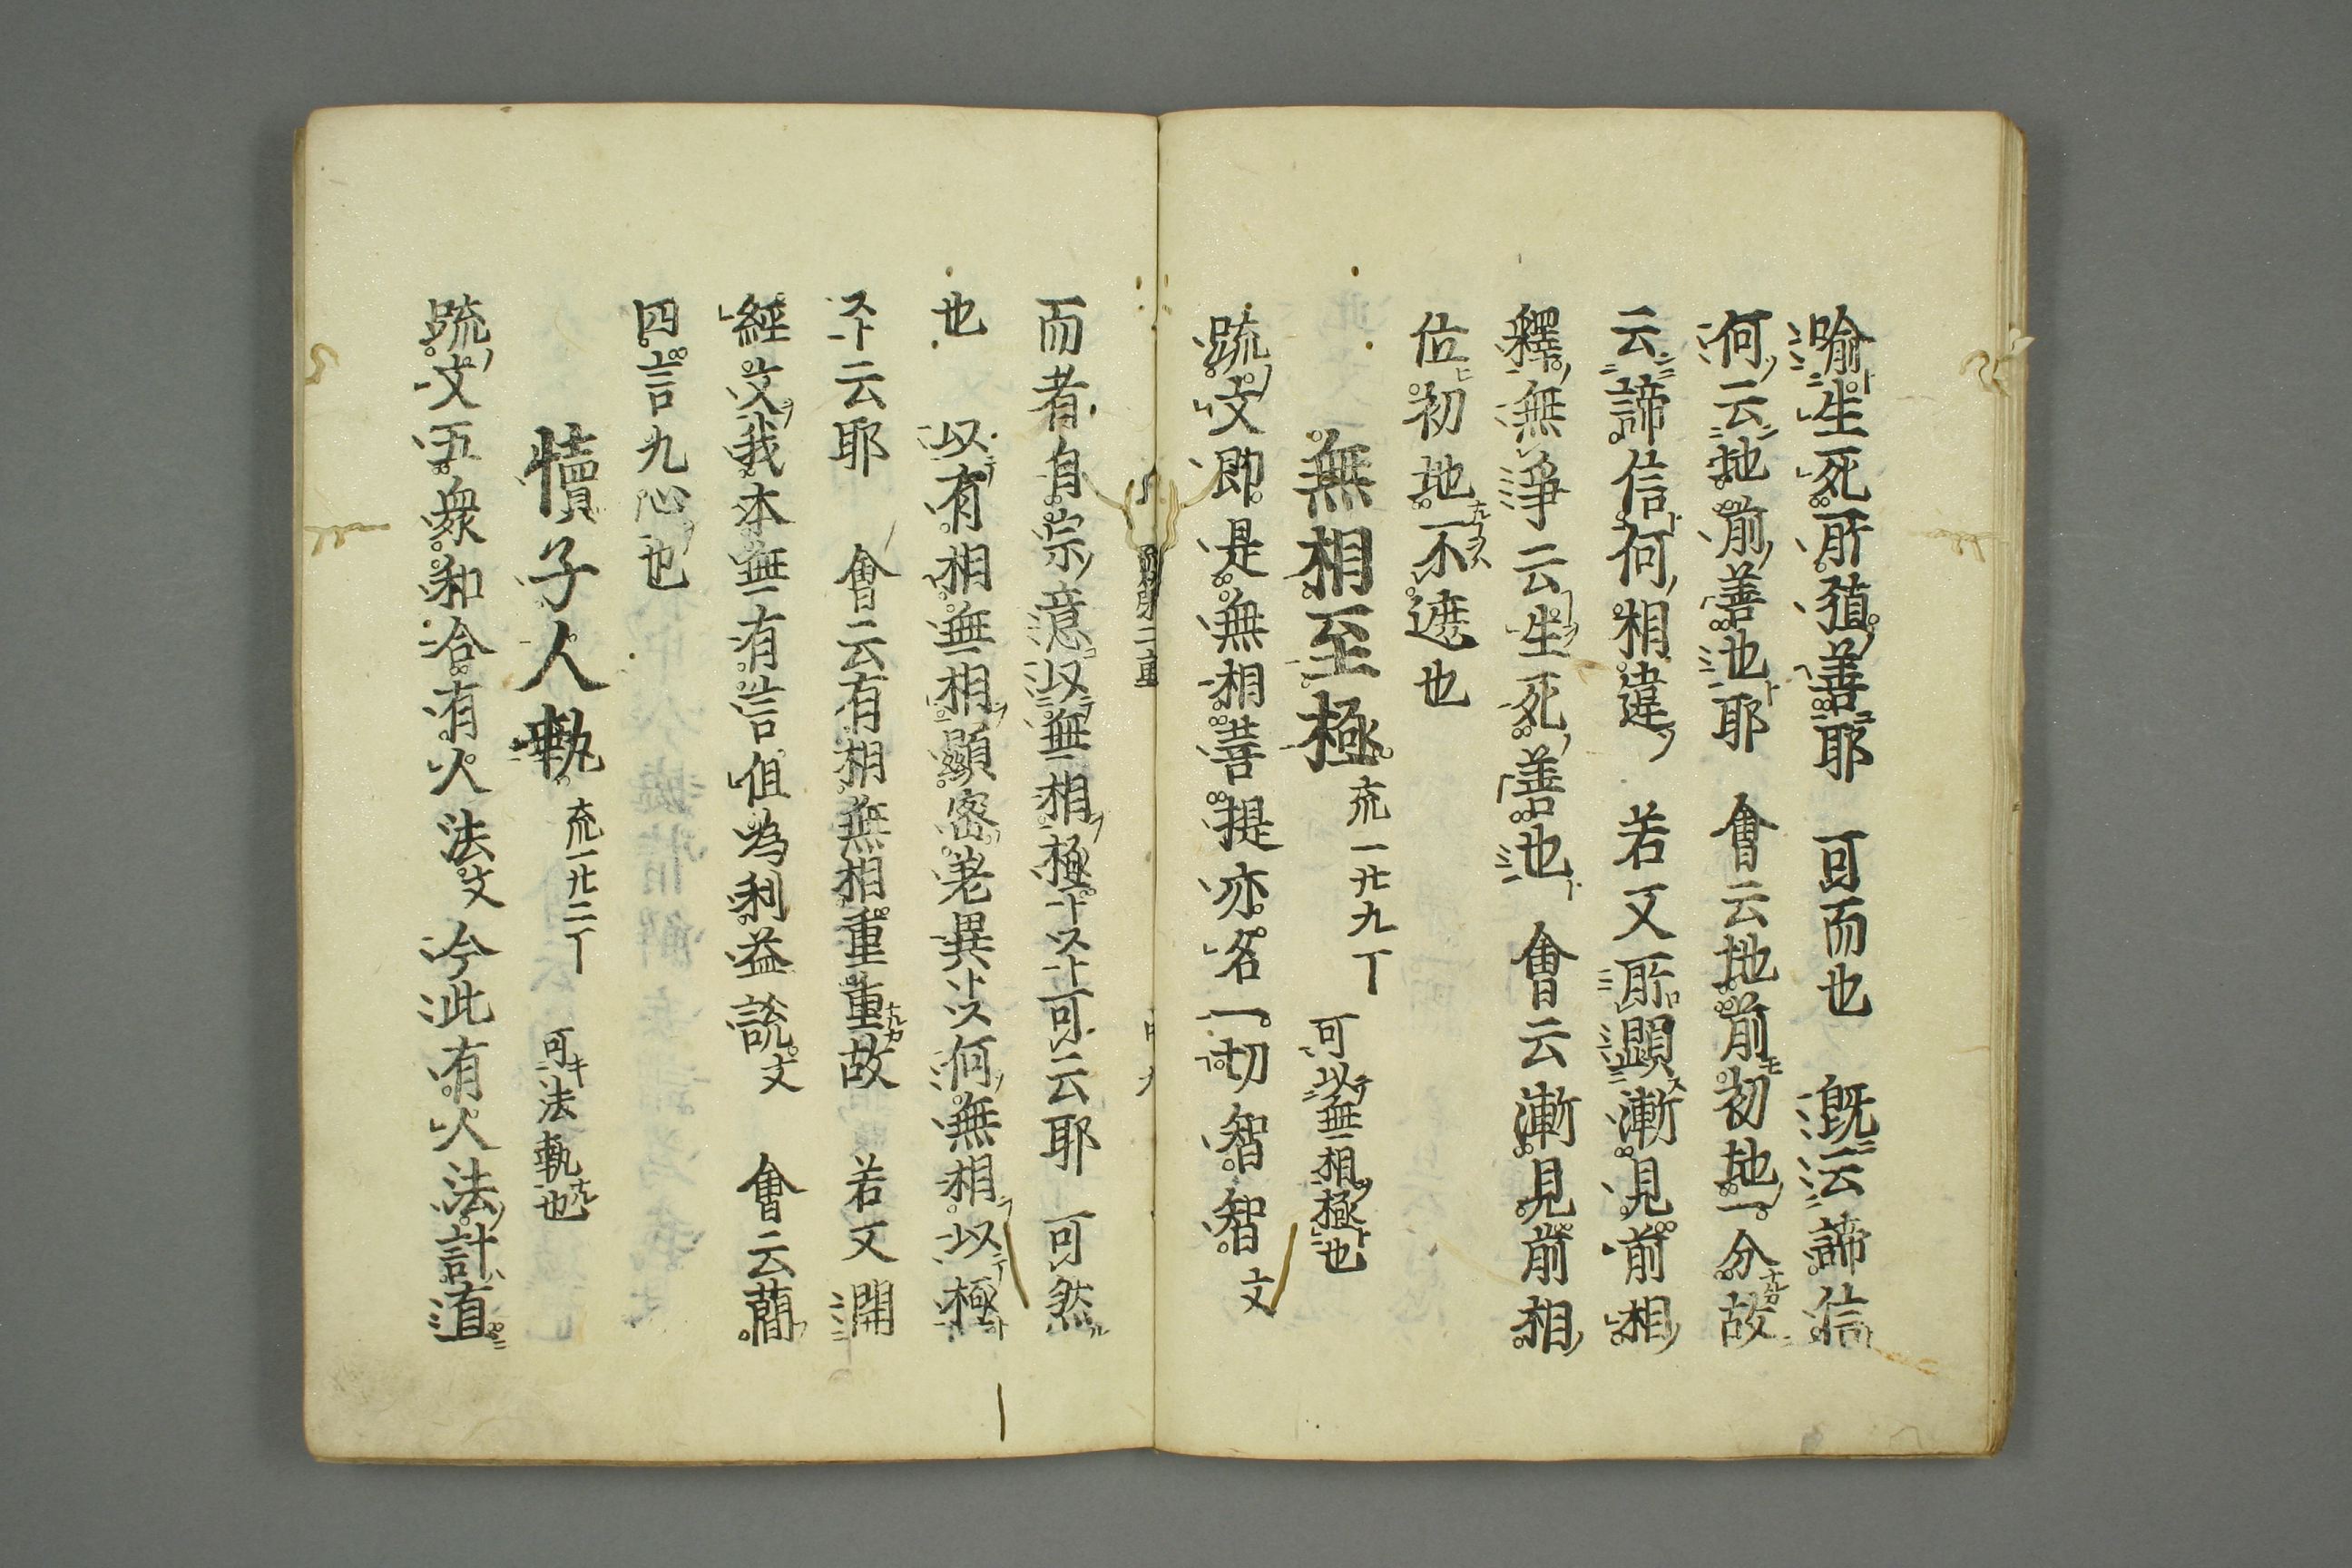 喻生死所殖善耶 可而也 既云諦信
何云地前善也耶 會云地前初地一分故
云諦信何相違 若又所顕漸見前相
釋無諍云生死善也 會云漸見前相
位初地不遮也
無相至極 疏一廿九丁 可以無相極也
疏文即是無相菩提亦名一切智智文
二重
而者自宗意以無相極 可云耶 可然
也 以有相無相顕密 異 何無相以極
云耶 會云有相無相重重故 若又開
經文我本無有言但為利益説文 會云蘭
四言九心也
犢子人執 疏一廿二丁 可法執也
疏文五衆和合有人法文 今此有人法計道